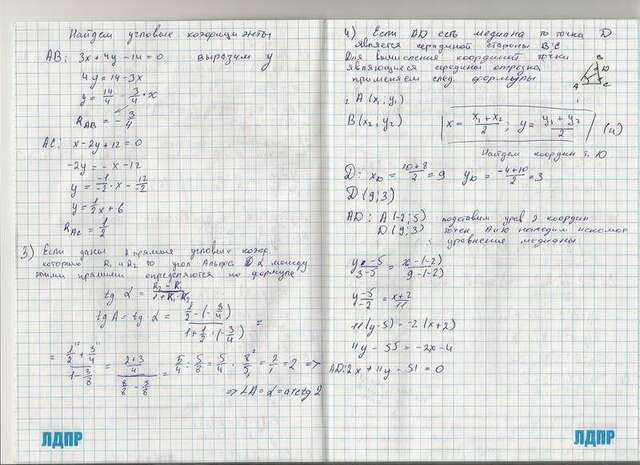 Найдем угловые коэфициэнты
AB: 3x + 4y - 14 = 0 выразим y
4y = 14 - 3x
y = 14/4 - 3/4 · x
K_AB = - 3/4
AC: x - 2y + 12 = 0
-2y = -x - 12
y = -1/-2 · x - 12/-2
y = 1/2 x + 6
K_AC = 1/2
3) Если даны 2 прямые угловые коэф.
которых K₁ и K₂ то угол Альфа α между
этими прямыми определяются по формуле
tg α = K₂ - K₁ / 1 + K₁ · K₂
tg A = tg α = 1/2 - (-3/4) / 1 + 1/2 · (-3/4) =
= 1/2 + 3/4 / 1 - 3/8 = 2+3/4 / 8/8 - 3/8 = 5/4 : 5/8 = 5/4 · 8/5 = 2/1 = 2 =>
=> ∠A = α = arctg 2
ЛДПР
4) Если AD есть медиана то точка D
является серединой стороны BC
Для вычисления координат точки
являющиеся середины отрезка
применяем след. формулы
B
D
A
C
A (x₁, y₁)
B (x₂, y₂) x = x₁ + x₂ / 2 ; y = y₁ + y₂ / 2 (4)
Найдем координ т. D
D: x_D = 10+8 / 2 = 9 y_D = -4+10 / 2 = 3
D (9; 3)
AD: A (-2; 5) подставим урав 2 координ
D (9; 3) точек A и D находим
уравнения медианы
y - 5 / 3 - 5 = x - (-2) / 9 - (-2)
y - 5 / -2 = x + 2 / 11
11 (y - 5) = -2 (x + 2)
11y - 55 = -2x - 4
AD: 2x + 11y - 51 = 0
ЛДПР